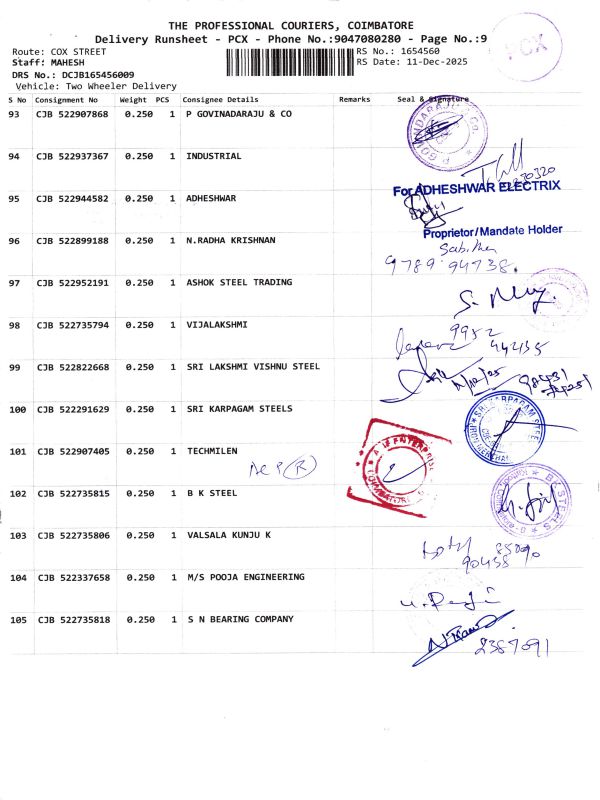 THE PROFESSIONAL COURIERS, COIMBATORE
Delivery Runsheet - PCX - Phone No.:9047080280 - Page No.:9
PCX
Route: COX STREET
RS No.: 1654560
Staff: MAHESH
RS Date: 11-Dec-2025
DRS No.: DCJB165456009
Vehicle: Two Wheeler Delivery
S No Consignment No Weight PCS Consignee Details Remarks Seal & Signature
93 CJB 522907868 0.250 1 P GOVINADARAJU & CO
94 CJB 522937367 0.250 1 INDUSTRIAL
For ADHESHWAR ELECTRIX
95 CJB 522944582 0.250 1 ADHESHWAR
Proprietor/Mandate Holder
96 CJB 522899188 0.250 1 N.RADHA KRISHNAN
9789 94738.
97 CJB 522952191 0.250 1 ASHOK STEEL TRADING
98 CJB 522735794 0.250 1 VIJALAKSHMI
9952
44435
99 CJB 522822668 0.250 1 SRI LAKSHMI VISHNU STEEL
11/12/25
100 CJB 522291629 0.250 1 SRI KARPAGAM STEELS
101 CJB 522907405 0.250 1 TECHMILEN
102 CJB 522735815 0.250 1 B K STEEL
103 CJB 522735806 0.250 1 VALSALA KUNJU K
90458
104 CJB 522337658 0.250 1 M/S POOJA ENGINEERING
105 CJB 522735818 0.250 1 S N BEARING COMPANY
2387091